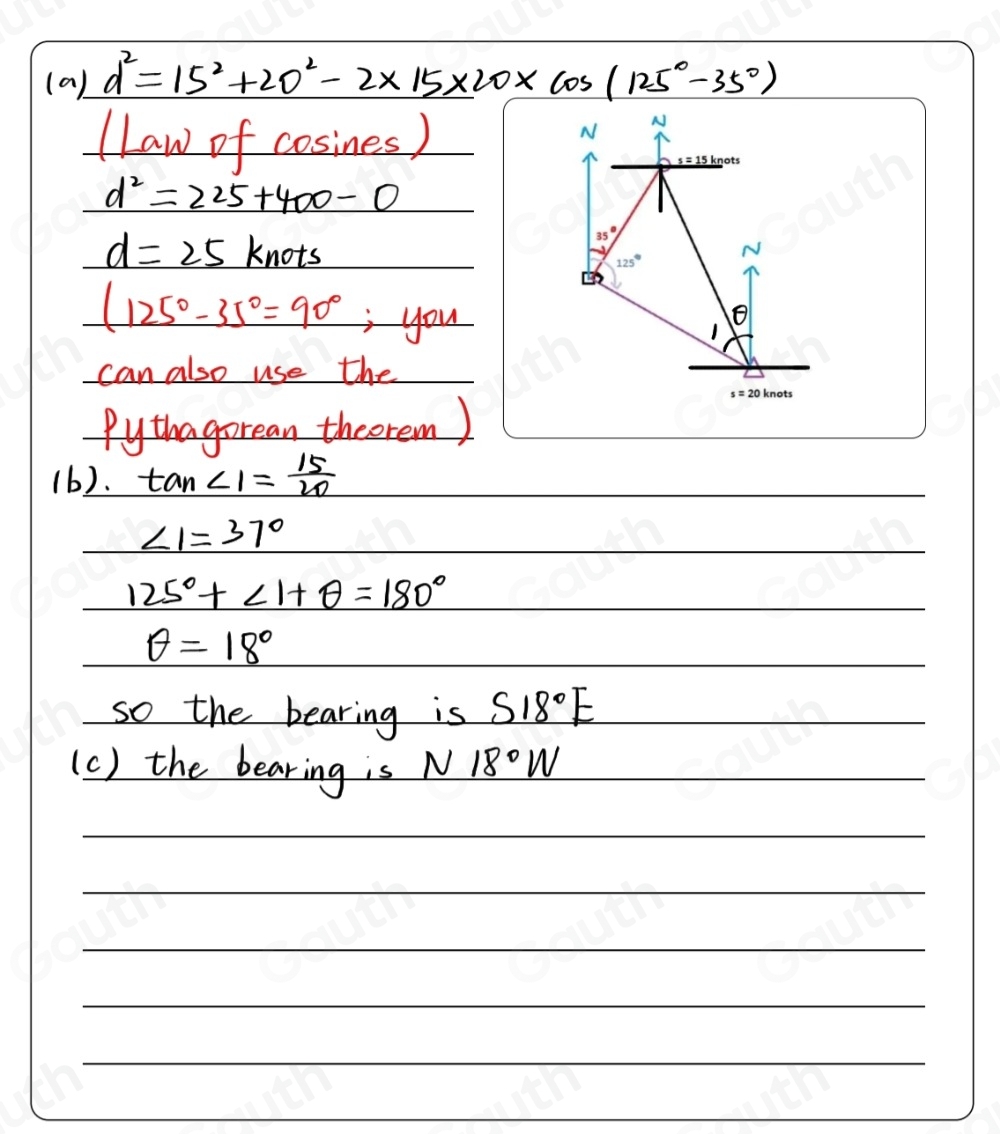 (a) d² = 15² + 20² - 2 × 15 × 20 × cos (125° - 35°)
(Law of cosines)
d² = 225 + 400 - 0
d = 25 knots
(125° - 35° = 90° ; you
can also use the
Pythagorean theorem)
N
N
s = 15 knots
35°
125°
N
θ
1
s = 20 knots
(b). tan ∠1 = 15/20
∠1 = 37°
125° + ∠1 + θ = 180°
θ = 18°
so the bearing is S18°E
(c) the bearing is N 18° W
Gauth